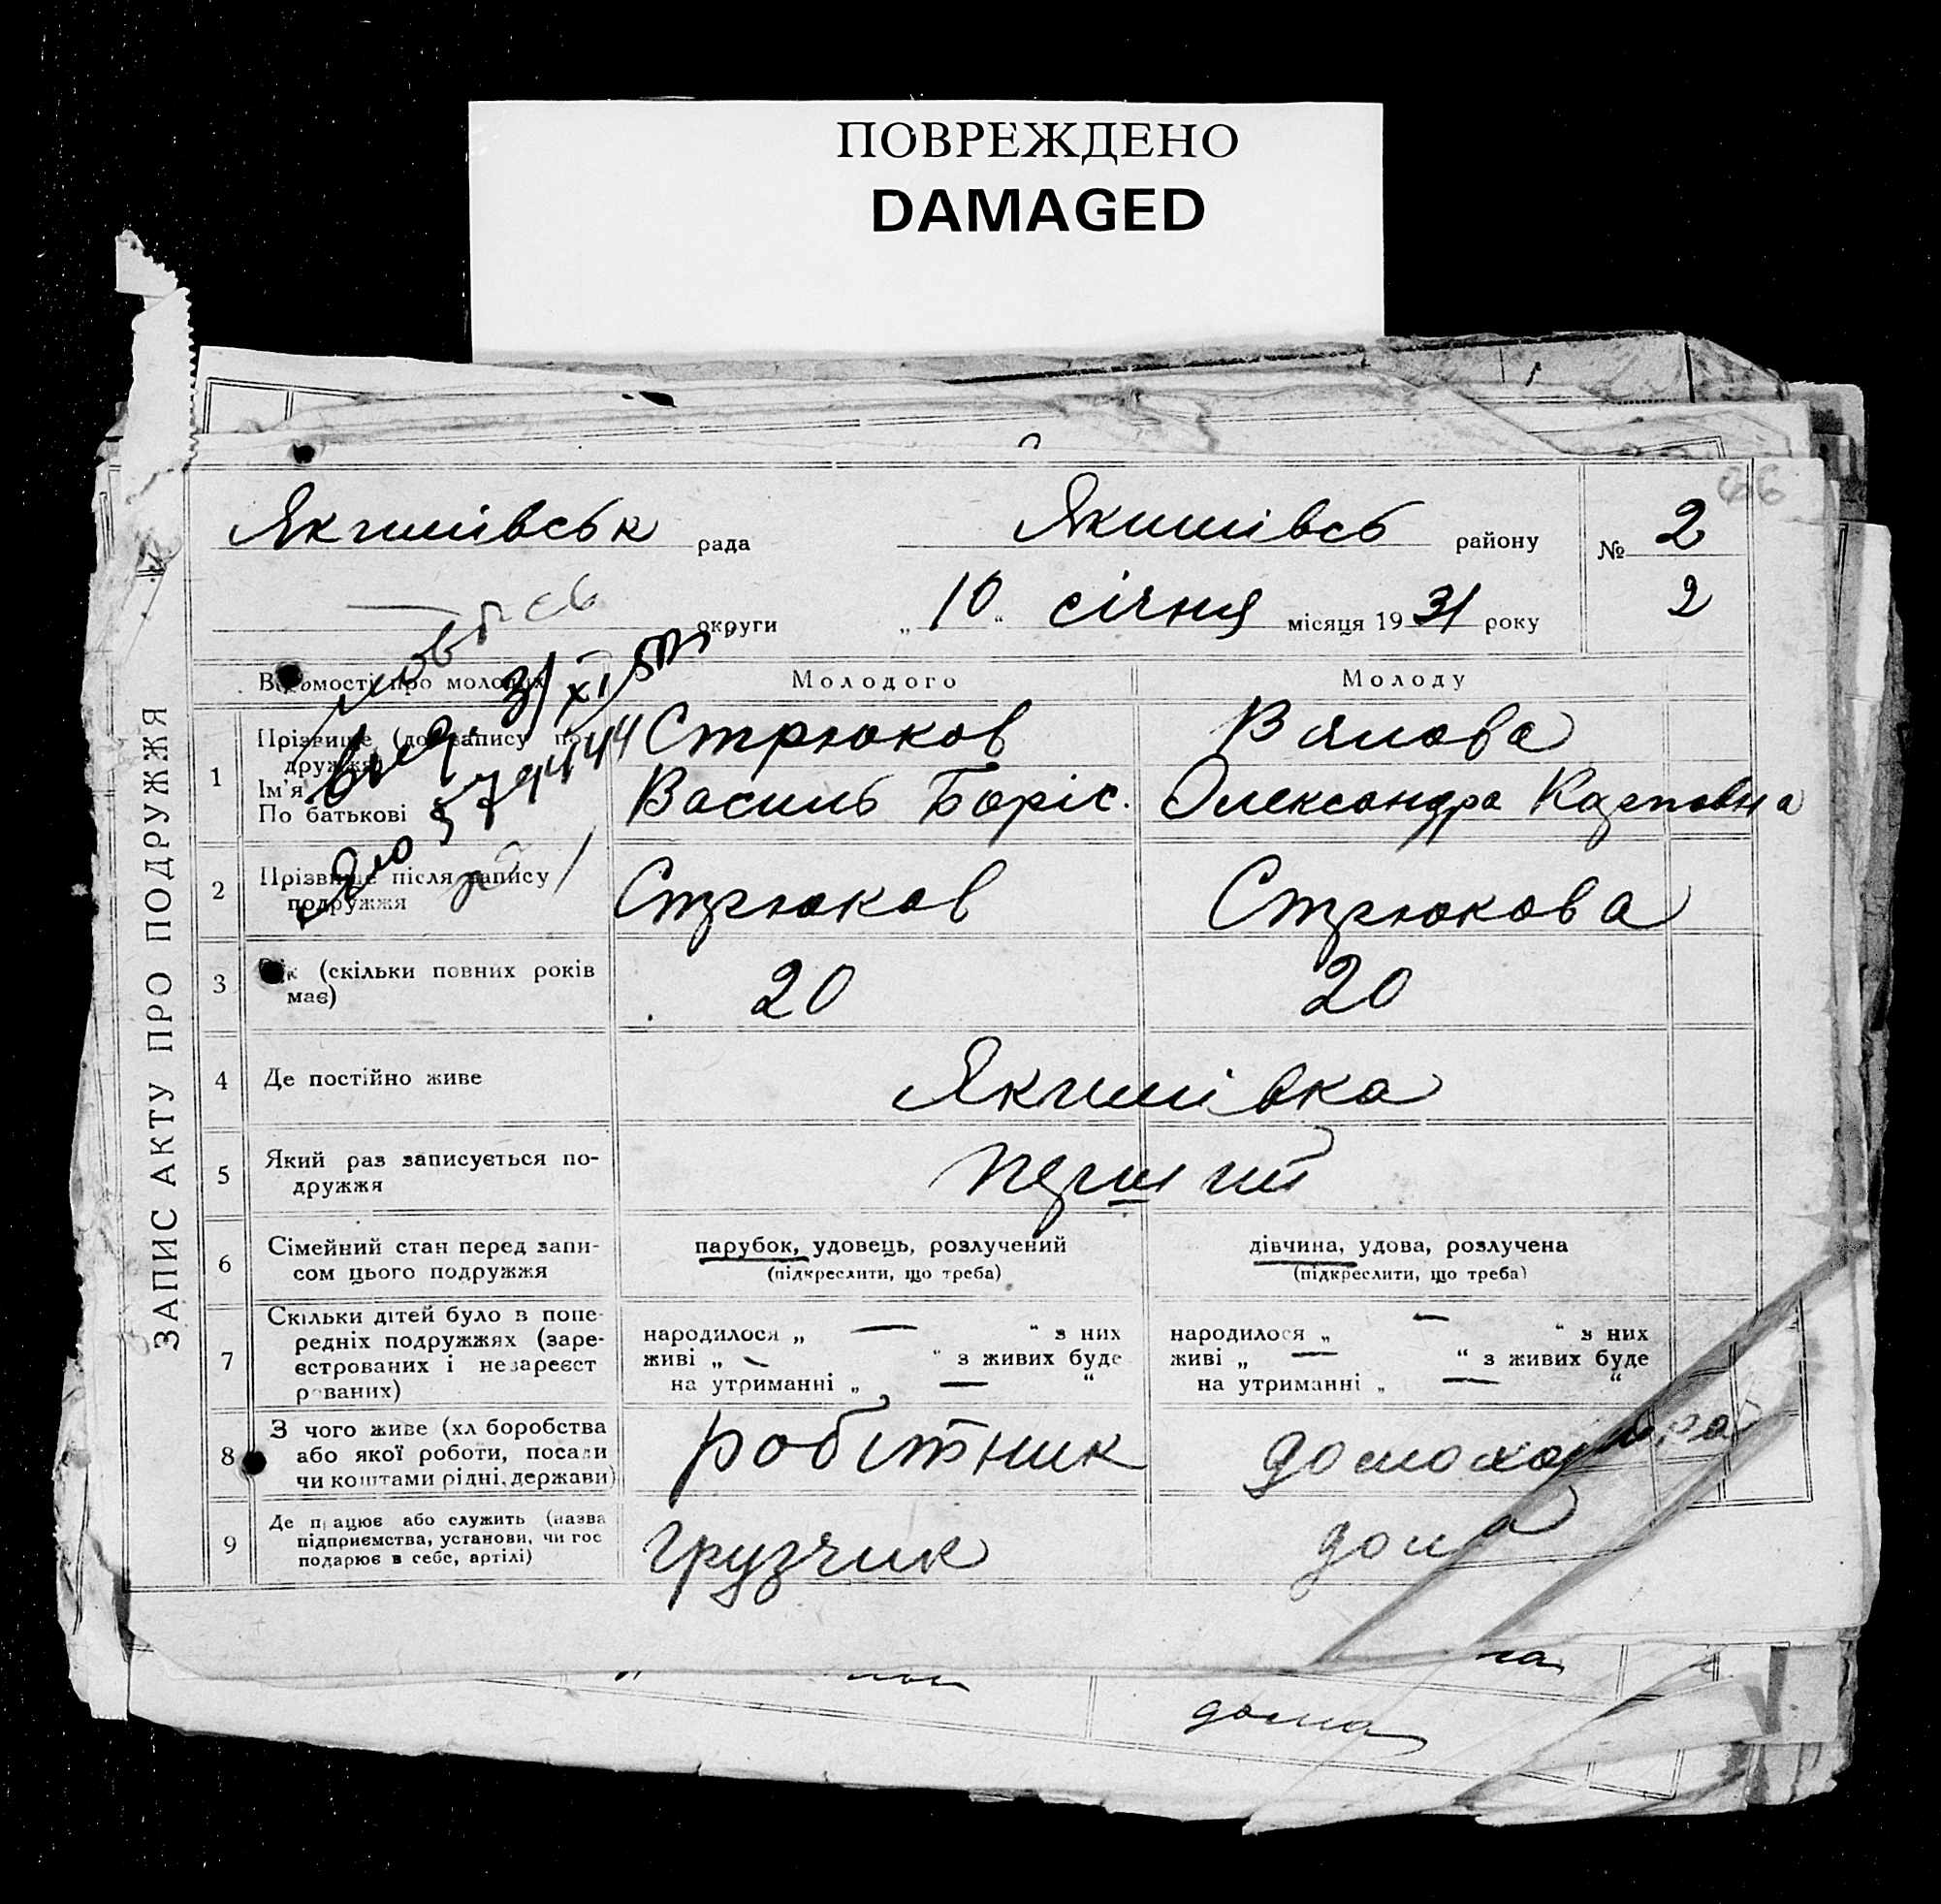 ПОВРЕЖДЕНО
DAMAGED
66
ЗАПИС АКТУ ПРО ПОДРУЖЖЯ
Якимівськ рада Якимівсь району № 2
округи „10“ січня місяця 1931 року 2
Відомості про молодих Молодого Молоду
1 Прізвище (до запису подружжя) Стрюков
Ім'я
По батькові Василь Боріс. Олександра Карповна
2 Прізвище після запису подружжя Стрюков Стрюкова
3 Вік (скільки повних років має) 20 20
4 Де постійно живе Якимівка
5 Який раз записується по-
дружжя перший
6 Сімейний стан перед запи-
сом цього подружжя
парубок, удовець, розлучений дівчина, удова, розлучена
(підкреслити, що треба) (підкреслити, що треба)
7 Скільки дітей було в попе-
редніх подружжях (заре-
єстрованих і незареєст
рованих)
народилося „ — “ з них народилося „ — “ з них
живі „ — “ з живих буде живі „ — “ з живих буде
на утриманні „ — “ на утриманні „ — “
8 З чого живе (хліборобства
або якої роботи, посади
чи коштами рідні, держави) робітник
9 Де працює або служить (назва
підприємства, установи, чи гос
подарює в себе, артілі) грузчик дома
дома